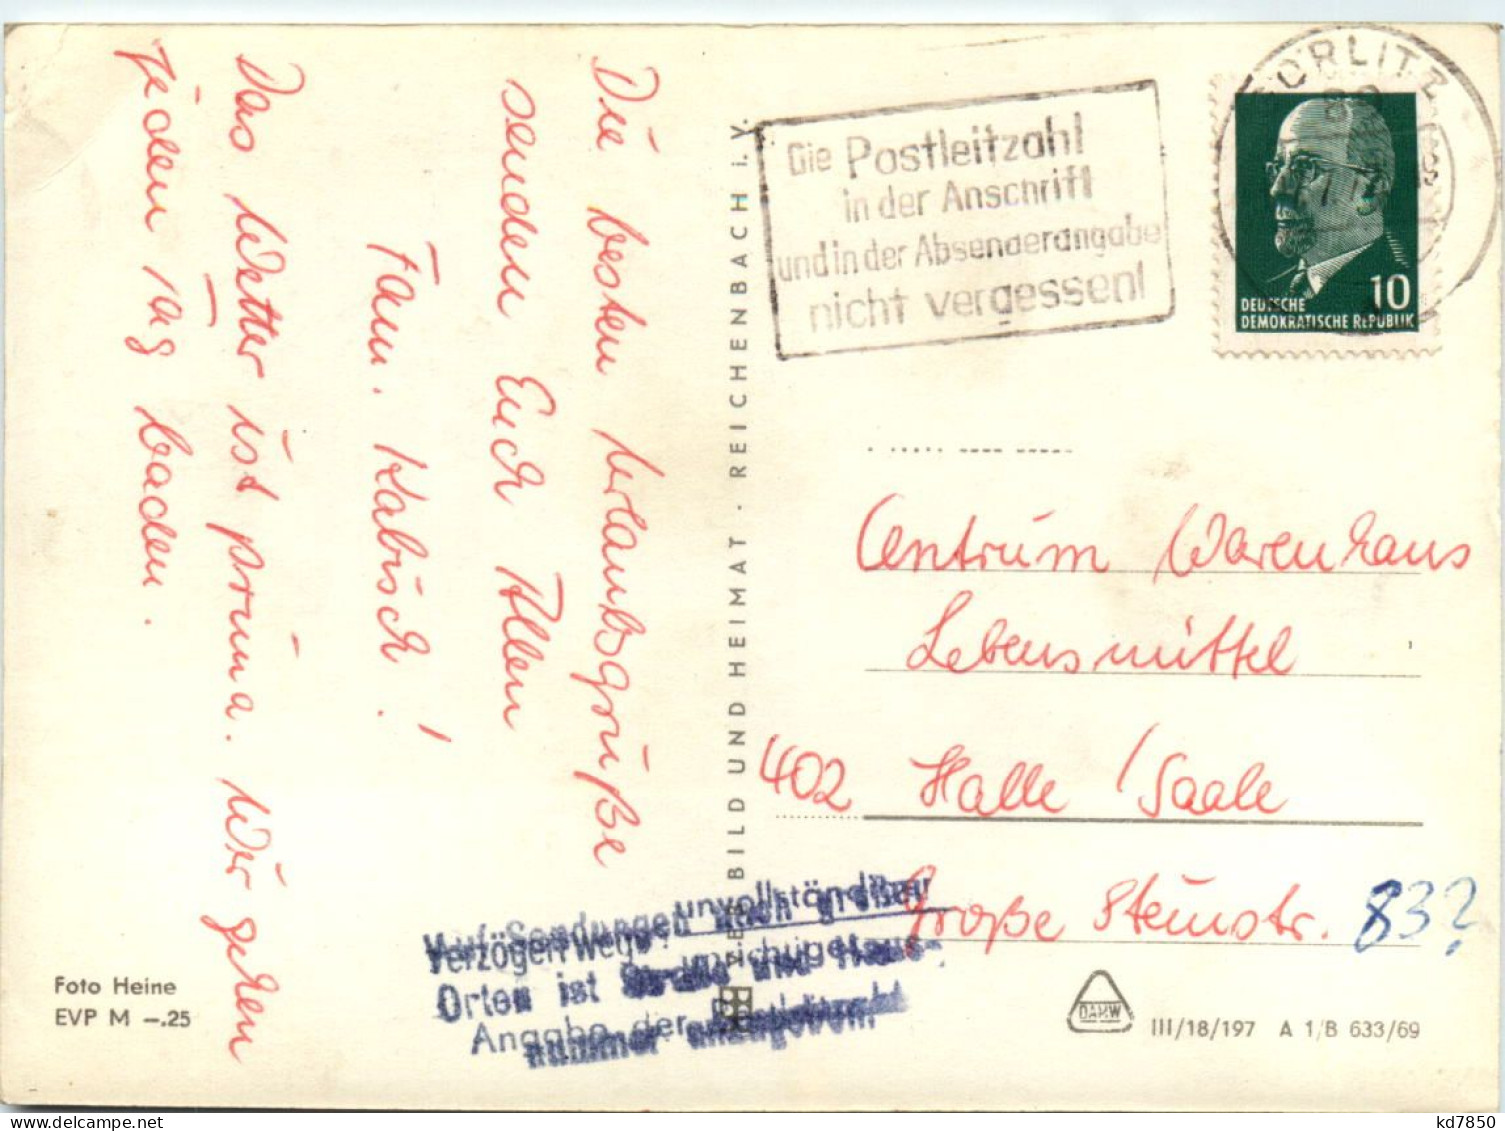 Die besten Urlaubsgrüße
senden Euch Allen
Fam. Kabisch!
Das Wetter ist prima. Wir gehen
jeden Tag baden.
Foto Heine
EVP M –.25
BILD UND HEIMAT · REICHENBACH i. V.
Die Postleitzahl
in der Anschrift
und in der Absenderangabe
nicht vergessen!
GÖRLITZ
10
DEUTSCHE
DEMOKRATISCHE REPUBLIK
Centrum Warenhaus
Lebensmittel
402 Halle/Saale
Große Steinstr. 83?
unvollständiger
Auf Sendungen nach großen
Verzögert wegen
Orten ist Straße und Haus-
Angabe der Postleitzahl
nummer anzugeben!
DAMW
III/18/197 A 1/B 633/69
delcampe.net
kd7850